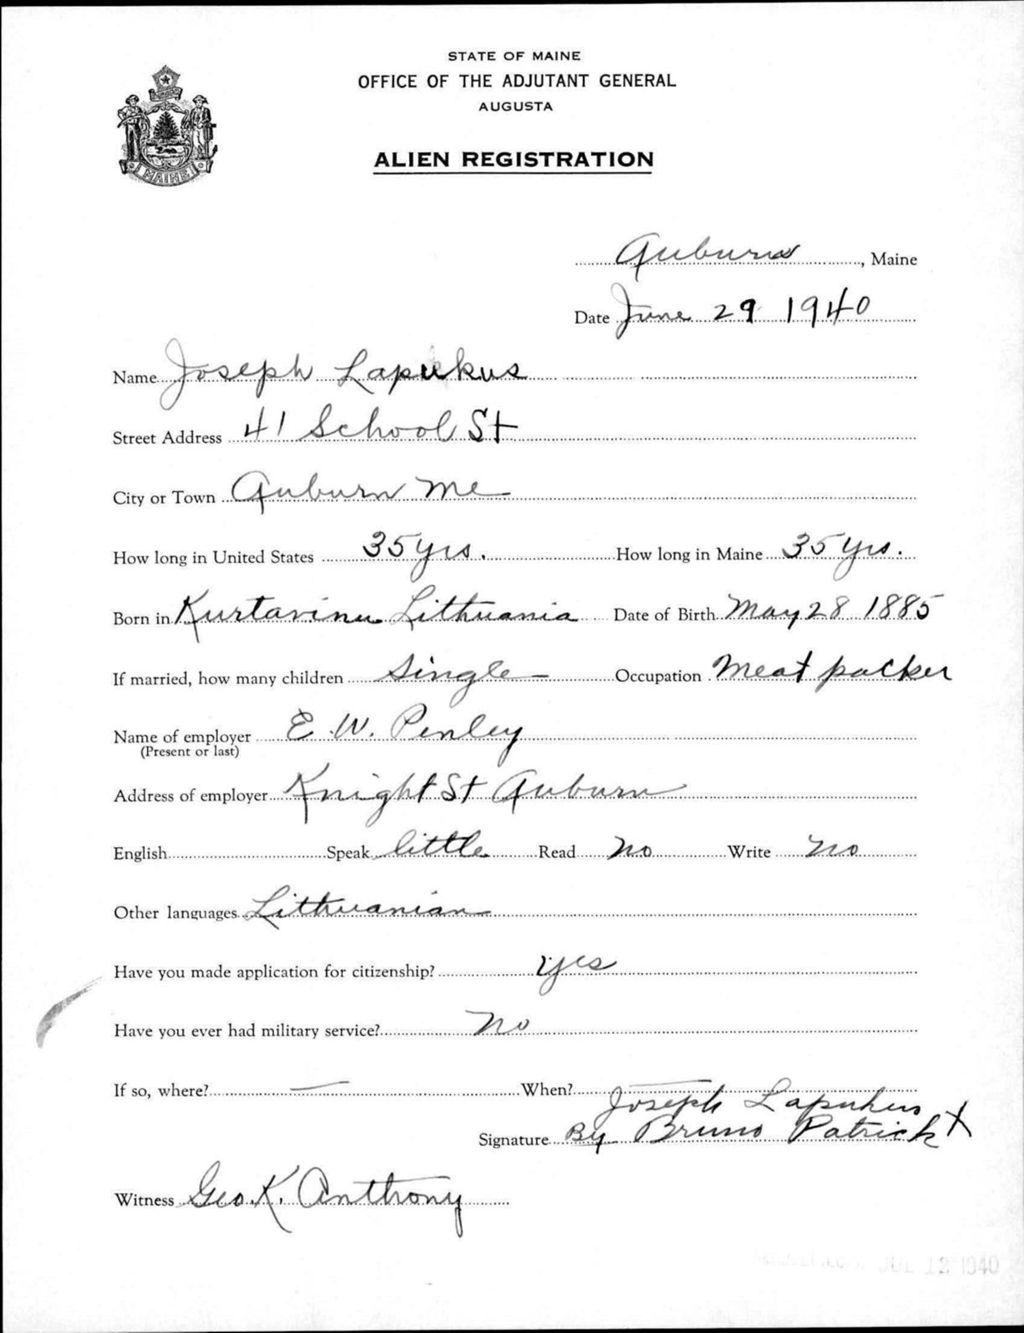 STATE OF MAINE
OFFICE OF THE ADJUTANT GENERAL
AUGUSTA
ALIEN REGISTRATION
MAINE
Auburn, Maine
Date June 29 1940
Name Joseph Lapukus
Street Address 41 School St
City or Town Auburn Me
How long in United States 35 yrs. How long in Maine 35 yrs.
Born in Kurtavinu Lithuania Date of Birth May 28 1885
If married, how many children Single Occupation Meat packer
Name of employer E. W. Penley
(Present or last)
Address of employer Knight St Auburn
English Speak little Read No Write No
Other languages Lithuanian
Have you made application for citizenship? Yes
Have you ever had military service? No
If so, where? — When?
Joseph Lapukus
Signature By Bruno Patrick X
Witness Geo. K. Anthony
JUL 12 1940